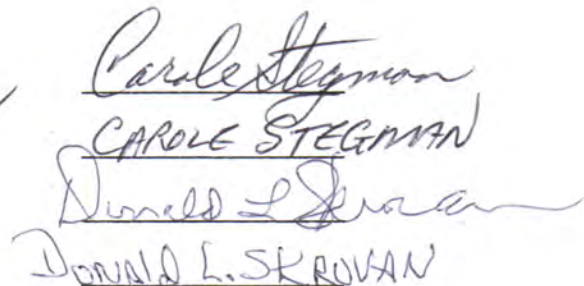 Carole Stegman
CAROLE STEGMAN
Donald L Skrovan
DONALD L. SKROVAN